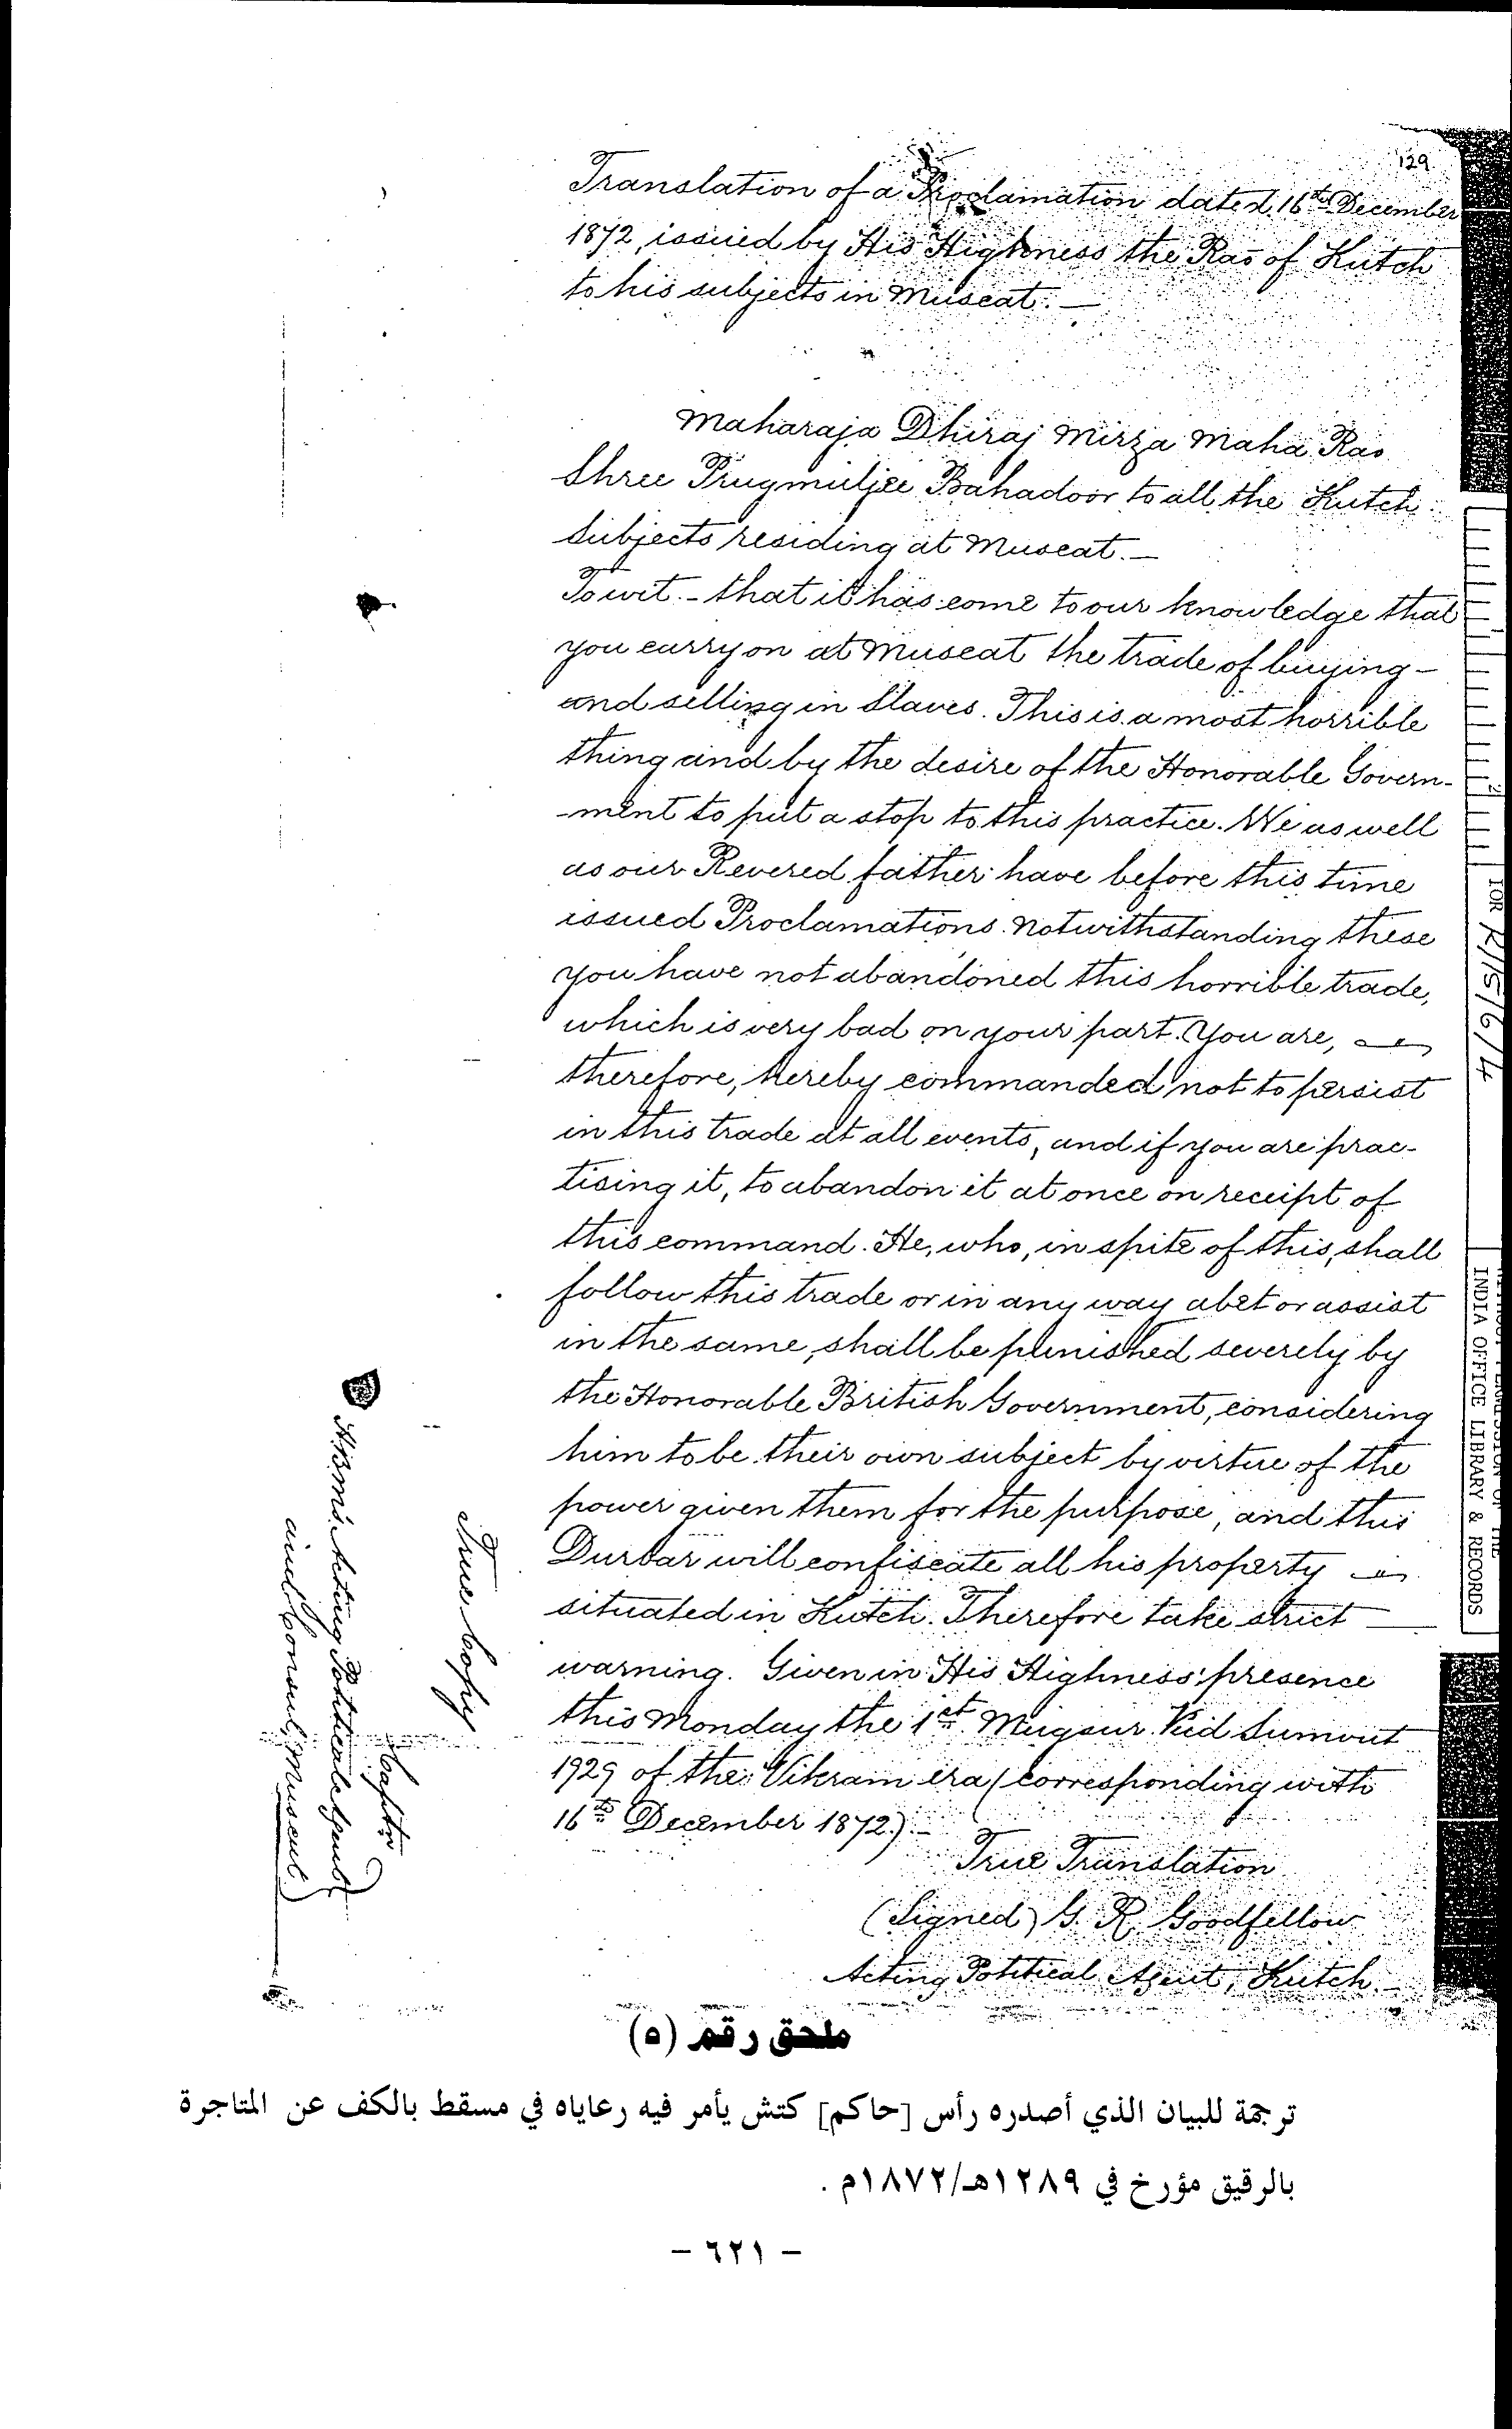 129
Translation of a Proclamation dated 16th December
1872, issued by His Highness the Rao of Kutch
to his subjects in Muscat. —
Maharaja Dhiraj Mirza Maha Rao
Shree Prugmuljee Bahadoor to all the Kutch
Subjects residing at Muscat. —
To wit. - that it has come to our knowledge that
you carry on at Muscat the trade of buying -
and selling in Slaves. This is a most horrible
thing and by the desire of the Honorable Govern-
-ment to put a stop to this practice. We as well
as our Revered father have before this time
issued Proclamations. Notwithstanding these
you have not abandoned this horrible trade,
which is very bad on your part. You are,
therefore, hereby commanded not to persist
in this trade at all events, and if you are prac-
tising it, to abandon it at once on receipt of
this command. He, who, in spite of this, shall
follow this trade or in any way abet or assist
in the same, shall be punished severely by
the Honorable British Government, considering
him to be their own subject by virtue of the
power given them for the purpose, and this
Durbar will confiscate all his property
situated in Kutch. Therefore take strict —
warning. Given in His Highness' presence
this Monday the 1st Mugsur Vud Sumvut
1929 of the Vikram era (corresponding with
16th December 1872). -
True Translation
(Signed) G. R. Goodfellow
Acting Political Agent, Kutch. -
True Copy
Captn
H.B.M's. Acting Political Agent
and Consul, Muscat
2
IOR R/15/6/4
INDIA OFFICE LIBRARY & RECORDS
ملحق رقم (٥)
ترجمة للبيان الذي أصدره رأس [حاكم] كتش يأمر فيه رعاياه في مسقط بالكف عن المتاجرة
بالرقيق مؤرخ في ١٢٨٩هـ/١٨٧٢م .
– ٦٢١ –